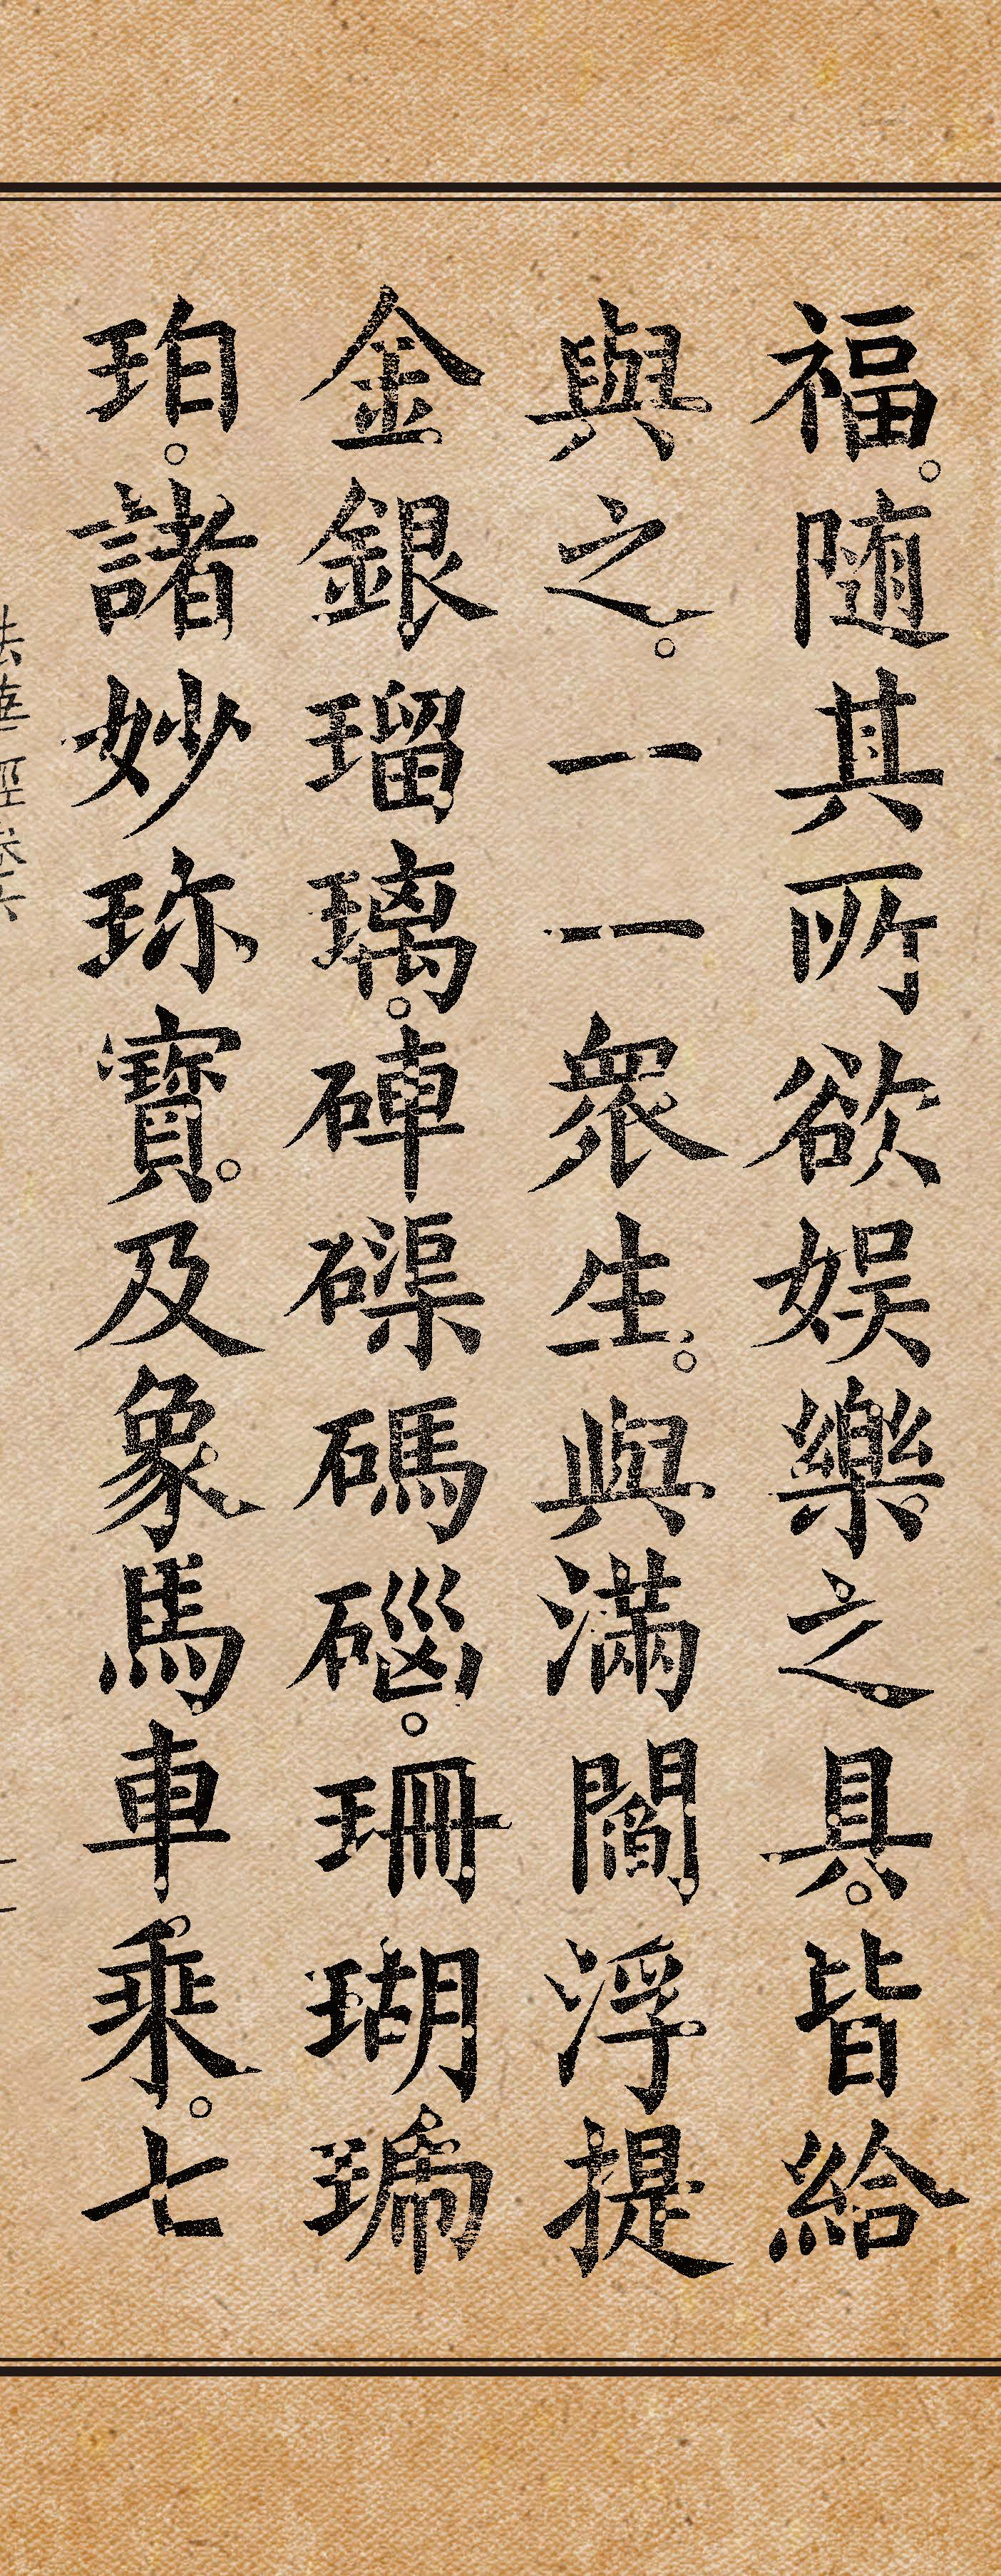 福。随其所欲娛樂之具。皆給
與之。一一眾生。與滿閻浮提
金銀瑠璃。硨磲碼碯。珊瑚琥
珀。諸妙珎寶。及象馬車乘。七
法華經卷六